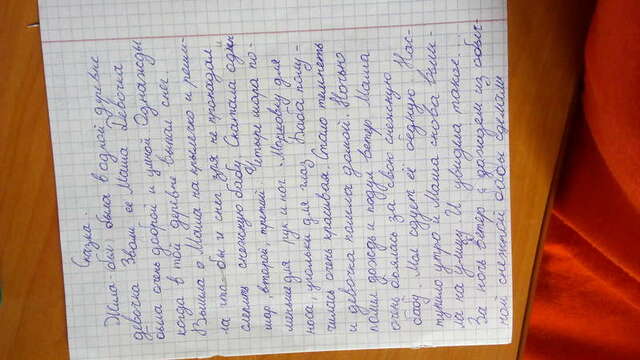 Сказка.
Жила-была была в одной деревне
девочка Звали её Маша Девочка
была очень доброй и умной Однажды
когда в той деревне выпал снег
Вышла Маша на крылечко и реши-
ла что-бы и снег зря не пропадал
слепить снежную бабу. Скатала один
шар, второй, третий Четыре шара по-
меньше для рук и ног. Морковку для
носа, угольки для глаз Баба полу-
чилась очень красивая Стало темнеть
и девочка пошла домой. Ночью
пошёл дождь и подул ветер Маша
очень боялась за свою снежную
бабу. Мол сдует её бедную Нас-
тупило утро и Маша снова выш-
ла на улицу И увидела такое...
За ночь ветер с дождём из обыч-
ной снежной бабы сделали